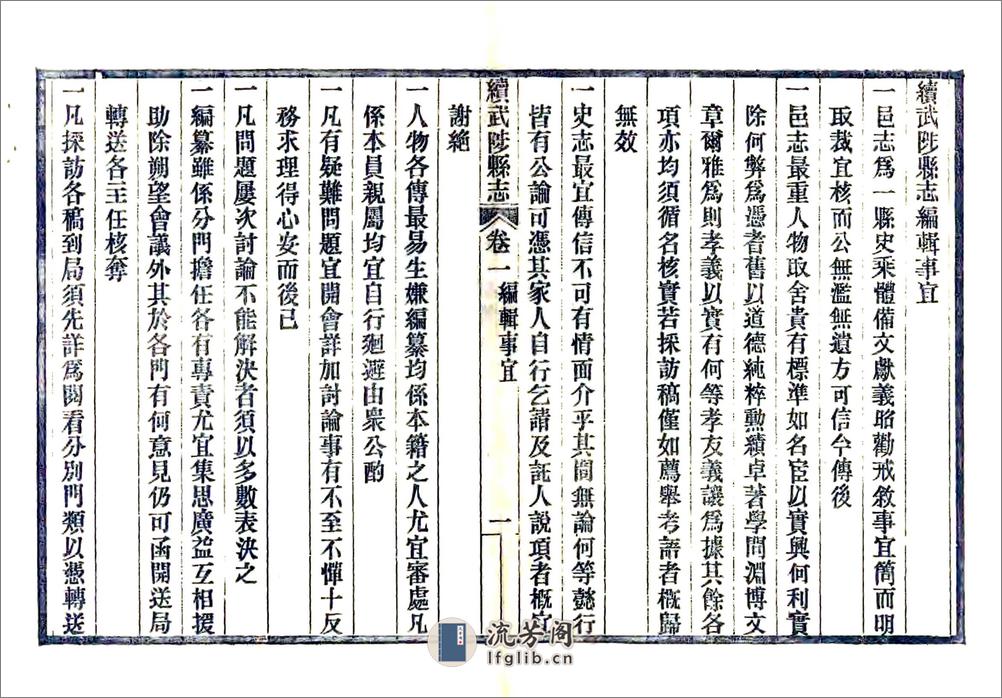 續武陟縣志編輯事宜
一邑志爲一縣史乘體備文獻義昭勸戒敘事宜簡而明
取裁宜核而公無濫無遺方可信今傳後
一邑志最重人物取舍貴有標準如名宦以實興何利實
除何弊爲憑耆舊以道德純粹勲績卓著學問淵博文
章爾雅爲則孝義以實有何等孝友義讓爲據其餘各
項亦均須循名核實若採訪稿僅如薦舉考語者概歸
無效
一史志最宜傳信不可有情面介乎其間無論何等懿行
皆有公論可憑其家人自行乞請及託人說項者概宜
謝絶
一人物各傳最易生嫌編纂均係本籍之人尤宜審處凡
係本員親屬均宜自行廻避由衆公酌
一凡有疑難問題宜開會詳加討論事有不至不憚十反
務求理得心安而後已
一凡問題屢次討論不能解決者須以多數表決之
一編纂雖係分門擔任各有專責尤宜集思廣益互相援
助除朔望會議外其於各門有何意見仍可函開送局
轉送各主任核奪
一凡採訪各稿到局須先詳爲閱看分別門類以憑轉送
續武陟縣志
卷一 編輯事宜
一
流芳阁
lfglib.cn